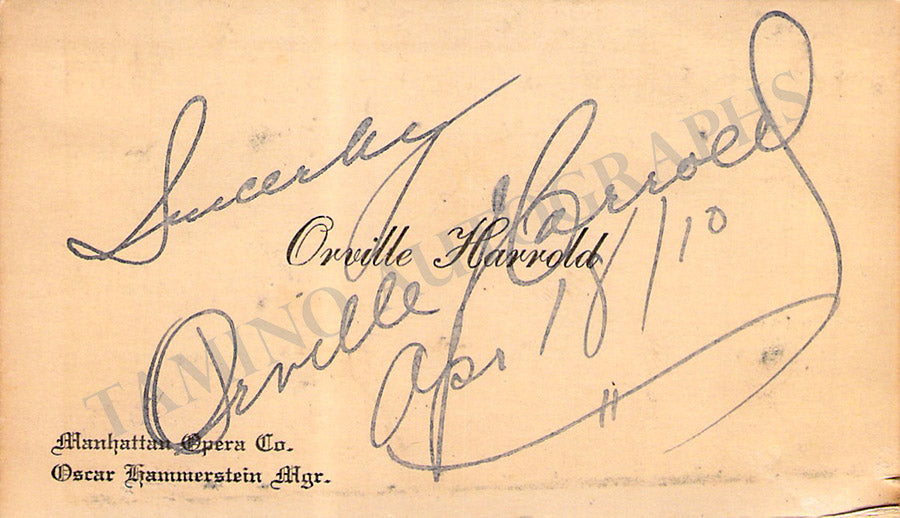 Sincerely
Orville Harrold
Orville Harrold
Apr 18/10
Manhattan Opera Co.
Oscar Hammerstein Mgr.
TAMINO AUTOGRAPHS